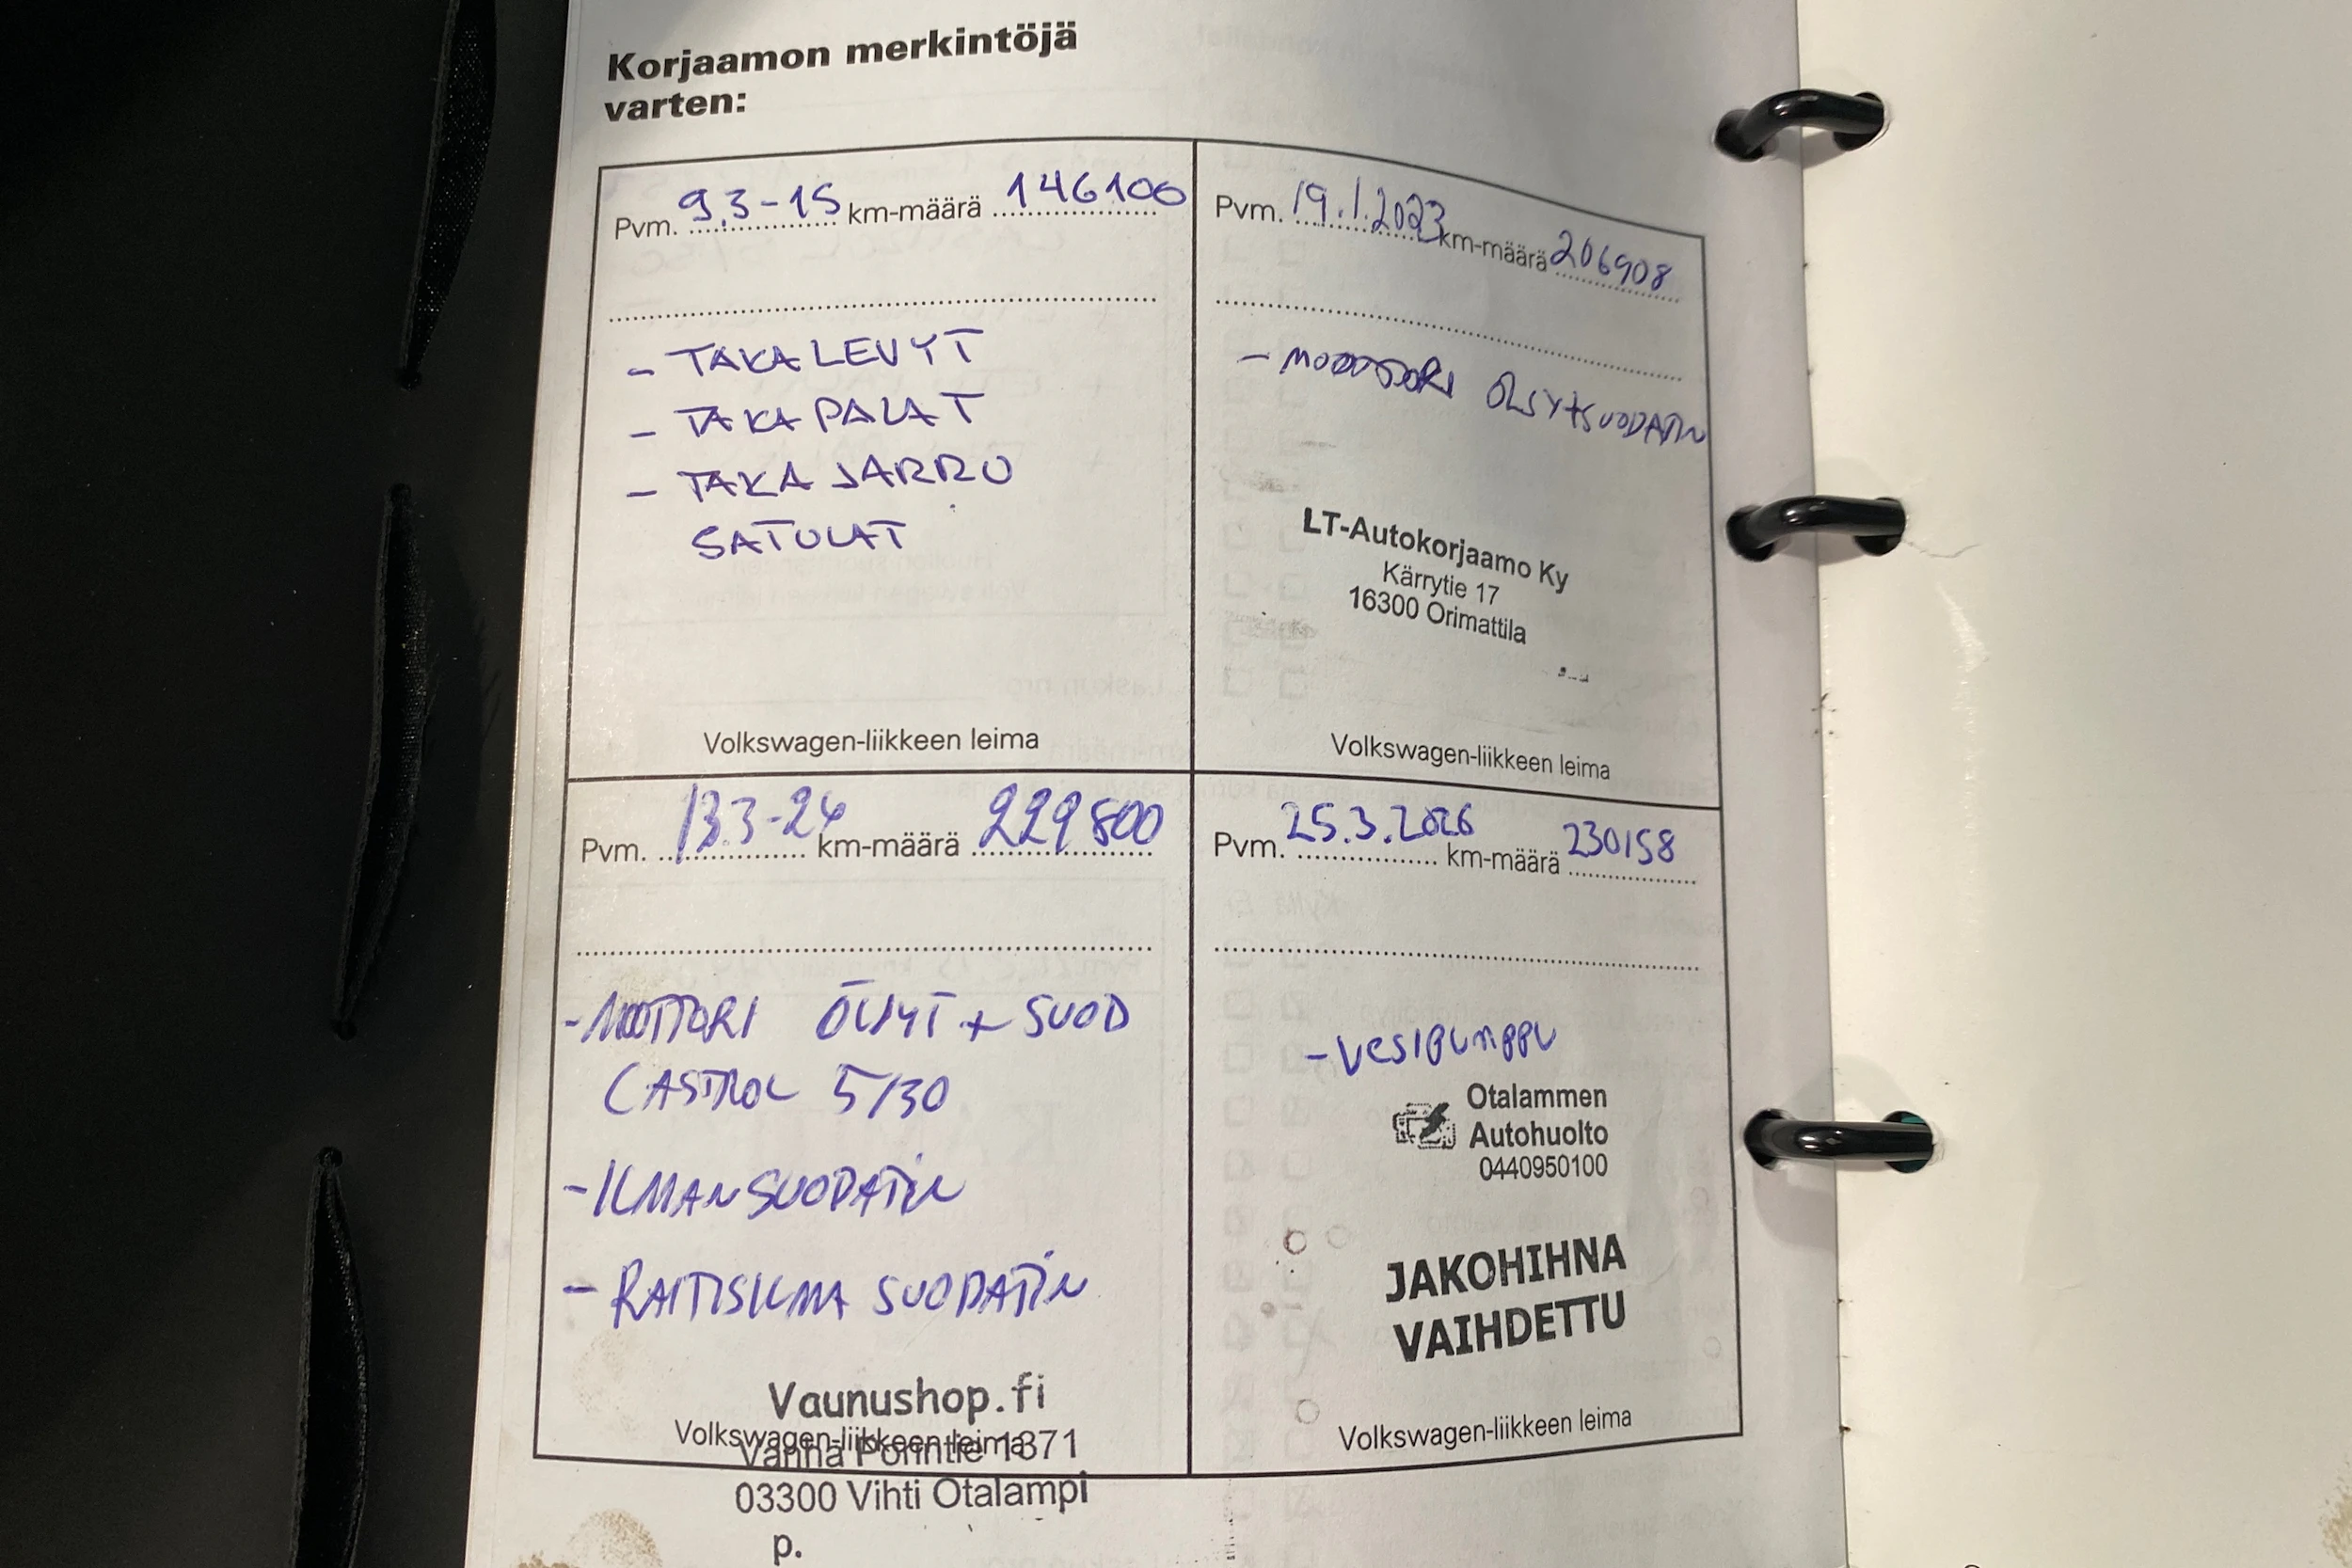 Korjaamon merkintöjä
varten:
Pvm. 9.3-15 km-määrä 146100
- TAKA LEVYT
- TAKA PALAT
- TAKA JARRU
SATULAT
Volkswagen-liikkeen leima
Pvm. 19.1.2023 km-määrä 206908
- MOOTTORI ÖLJYT+SUODATIN
LT-Autokorjaamo Ky
Kärrytie 17
16300 Orimattila
Volkswagen-liikkeen leima
Pvm. 13.3-24 km-määrä 229800
-MOOTTORI ÖLJYT + SUOD
CASTROL 5/30
-ILMANSUODATIN
- RAITISILMA SUODATIN
Vaunushop.fi
Volkswagen-liikkeen leima
Vanha Porintie 1371
03300 Vihti Otalampi
p.
Pvm. 25.3.2026 km-määrä 230158
-VESIPUMPPU
Otalammen
Autohuolto
0440950100
JAKOHIHNA
VAIHDETTU
Volkswagen-liikkeen leima